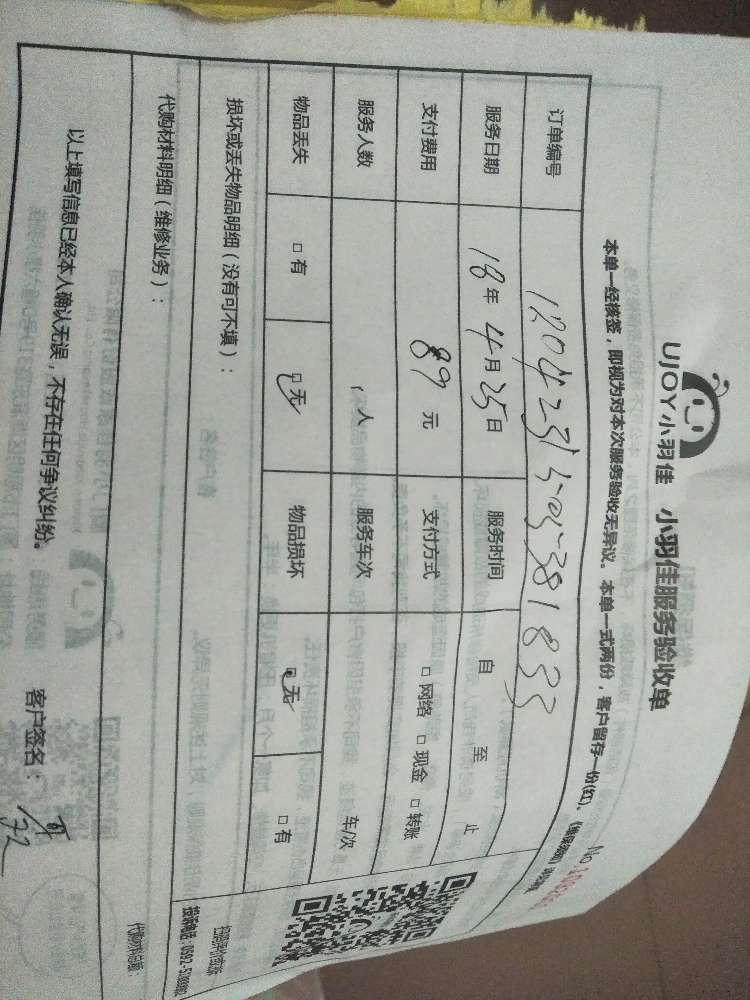 UJOY小羽佳 小羽佳服务验收单
本单一经核签，即视为对本次服务验收无异议。本单一式两份，客户留存一份(红)、
No.
订单编号
服务日期 18年4月25日 服务时间 自 至 止
支付费用 89元 支付方式 □网络 □现金 □转账
服务人数 人 服务车次 车/次
物品丢失 □有 □无 物品损坏 □无 □有
损坏或丢失物品明细（没有可不填）：
代购材料明细（维修业务）：
代购材料总额：
以上填写信息已经本人确认无误，不存在任何争议纠纷。 客户签名：